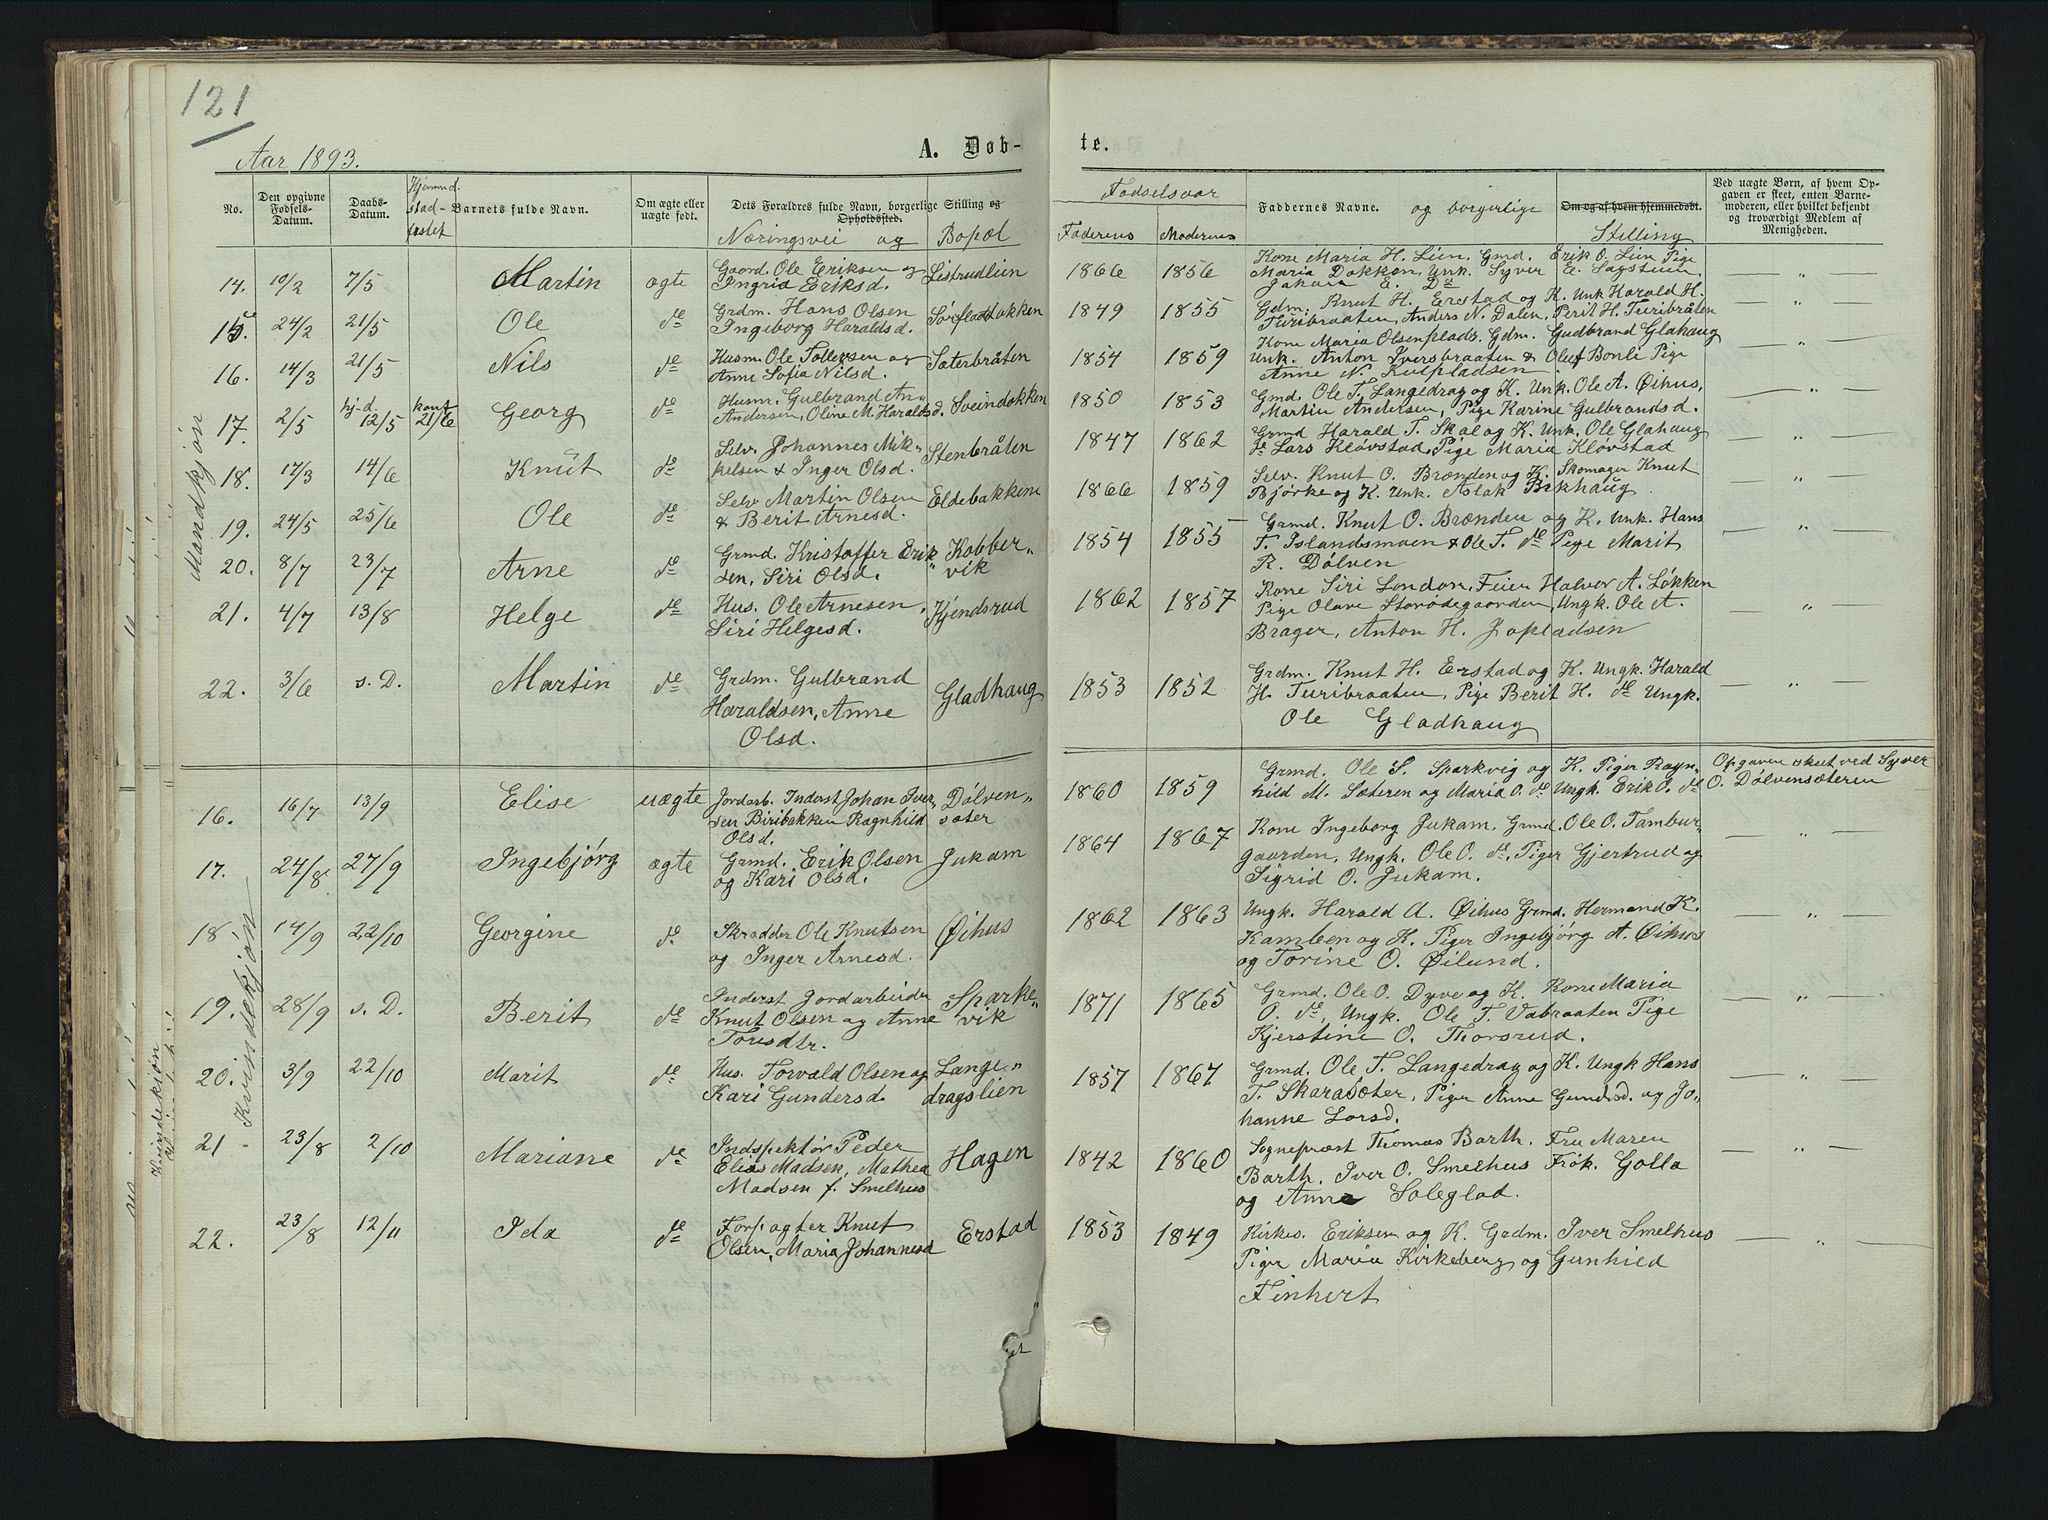 121
Aar 1893.
A. Døb-
te.
No.
Den opgivne Fødsels-Datum.
Daabs-Datum.
Hjemmed. stad-festet
Barnets fulde Navn.
Om ægte eller uægte født.
Dets Forældres fulde Navn, borgerlige Stilling og Opholdssted.
Næringsvei og Bopæl
Fødselsaar
Faderens
Moderens
Faddernes Navne.
og borgerlige Stilling
Om og af hvem hjemmedøbt.
Ved uægte Børn, af hvem Op-
gaven er skeet, enten Barne-
moderen, eller hvilket bekjendt
og troværdigt Medlem af
Menigheden.
Mandkjøn
14. 10/2 7/5 Martin ægte Gaard. Ole Eriksen og Listrudlien 1866 1856 Kone Maria H. Lien, Gmd. Erik O. Lien Pige
Ingria Eriksd. Maria Dokken, Unk. Syver E. Sagstuen,
Jakara E. Do — „ —
15. 24/2 21/5 Ole do Grdm. Hans Olsen Sørfladdokken 1849 1855 Gdm. Knut H. Erstad og K. Unk Harald H.
Ingeborg Haraldsd. Turibraaten, Anders N. Dalen, Perit H. Turibråten — „ —
16. 14/3 21/5 Nils do Husm. Ole Tollefsen og Sæterbråten 1854 1859 Kone Maria Olsenplads. Gdm. Gudbrand Glahaug
Anne Sofia Nilsd. Unk. Anton Iversbraaten & Oluf Bonli Pige
Anne N. Kolpladsen — „ —
17. 2/5 hj-d. 12/5 konf 21/6 Georg do Husm. Gulbrand An- Sveindokken 1850 1853 Gmd. Ole T. Langedrag og K. Unk. Ole A. Øihus,
Andersen, Oline M. Haraldsd. Martin Andersen, Pige Karine Gulbrandsd. — „ —
18. 17/3 14/6 Knut do Selv. Johannes Mik- Stenbråten 1847 1862 Grmd Harald T. Skal og K. Unk. Ole Glahaug
kelsen & Inger Olsd. do Lars Kløvstad, Pige Maria Kløvstad — „ —
19. 24/5 25/6 Ole do Selv Martin Olsen Eldebakkene 1866 1859 Selv. Knut O. Brænden og K. Skomager Knut
& Berit Arnesd. Bjørke og K. Unk. Aslak Birkhaug — „ —
20. 8/7 23/7 Arne do Grmd. Kristoffer Erik Kobber„ 1854 1855 Grmd. Knut O. Brænden og K. Unk. Hans
sen, Siri Olsd. vik T. Islandsmoen & Ole T. do Pige Marit
R. Dølven — „ —
21. 4/7 13/8 Helge do Hus. Ole Arnesen, Kjendsrud 1862 1857 Kone Siri London, Feier Halvor A. Løkken
Siri Helgesd. Pige Olave Storødegaarden, Ungk. Ole A.
Brager, Anton H. Jopladsen — „ —
22. 3/6 s. D. Martin do Grdm. Gulbrand Gladhaug 1853 1852 Grdm. Knut H. Erstad og K. Ungk. Harald
Haraldsen, Anne H. Turibraaten, Pige Berit H. do Ungk.
Olsd. Ole Gladhaug — „ —
Kvindekjøn
16. 16/7 13/9 Elise uægte Jordarb. Inderst Johan Iver„ Dølven„ 1860 1859 Grmd. Ole S. Sparkvig og K. Piger Ragn„ Opgaven skeet ved Syver
sen Biribakken Ragnhild sæter hild M. Sæteren og Maria O. do Ungk. Erik O. do O. Dølvensæteren
Olsd.
17. 24/8 27/9 Ingebjørg ægte Grmd. Erik Olsen Jukam 1864 1867 Kone Ingeborg Jukam. Grmd. Ole O. Tambur-
og Kari Olsd. gaarden, Ungk. Ole O. do, Piger Gjertrud og
Sigrid O. Jukam. — „ —
18 14/9 22/10 Georgine do Skrædder Ole Knutsen Øihus 1862 1863 Ungk. Harald A. Øihus Grmd. Hermand K.
og Inger Arnesd. Kamben og K. Piger Ingebjørg A. Øihus
og Torine O. Øilund. — „ —
19. 28/9 s. D. Berit do Inderst Jordarbeider Sparke„ 1871 1865 Grmd. Ole O. Dyve og K. Kone Maria
Knut Olsen og Anne vik O. do, Ungk. Ole T. Vabraaten Pige
Toresdtr. Kjerstine O. Thorsrud. — „ —
20. 3/9 22/10 Marit do Hus. Torvald Olsen og Lange„ 1857 1867 Grmd. Ole T. Langedrag og K. Ungk Hans
Kari Gundersd. dragslien T. Skarasæter, Piger Anne Gundersd. og Jo„
hanne Larsd. — „ —
21 - 23/8 2/10 Mariane do Indspektør Peder Hagen 1842 1860 Sogneprest Thomas Barth. Fru Maren
Elias Madsen, Mathea Barth, Iver O. Smelhus Frøk. Golla
Madsen f. Smelhus og Anna Soleglad. — „ —
22. 23/8 12/11 Ida do Forpagter Knut Erstad 1853 1849 Kirkes. Eriksen og K. Grdm. Iver Smelhus
Olsen, Maria Johannesd Piger Maria Kirkeberg og Gunhild
Finhert — „ —